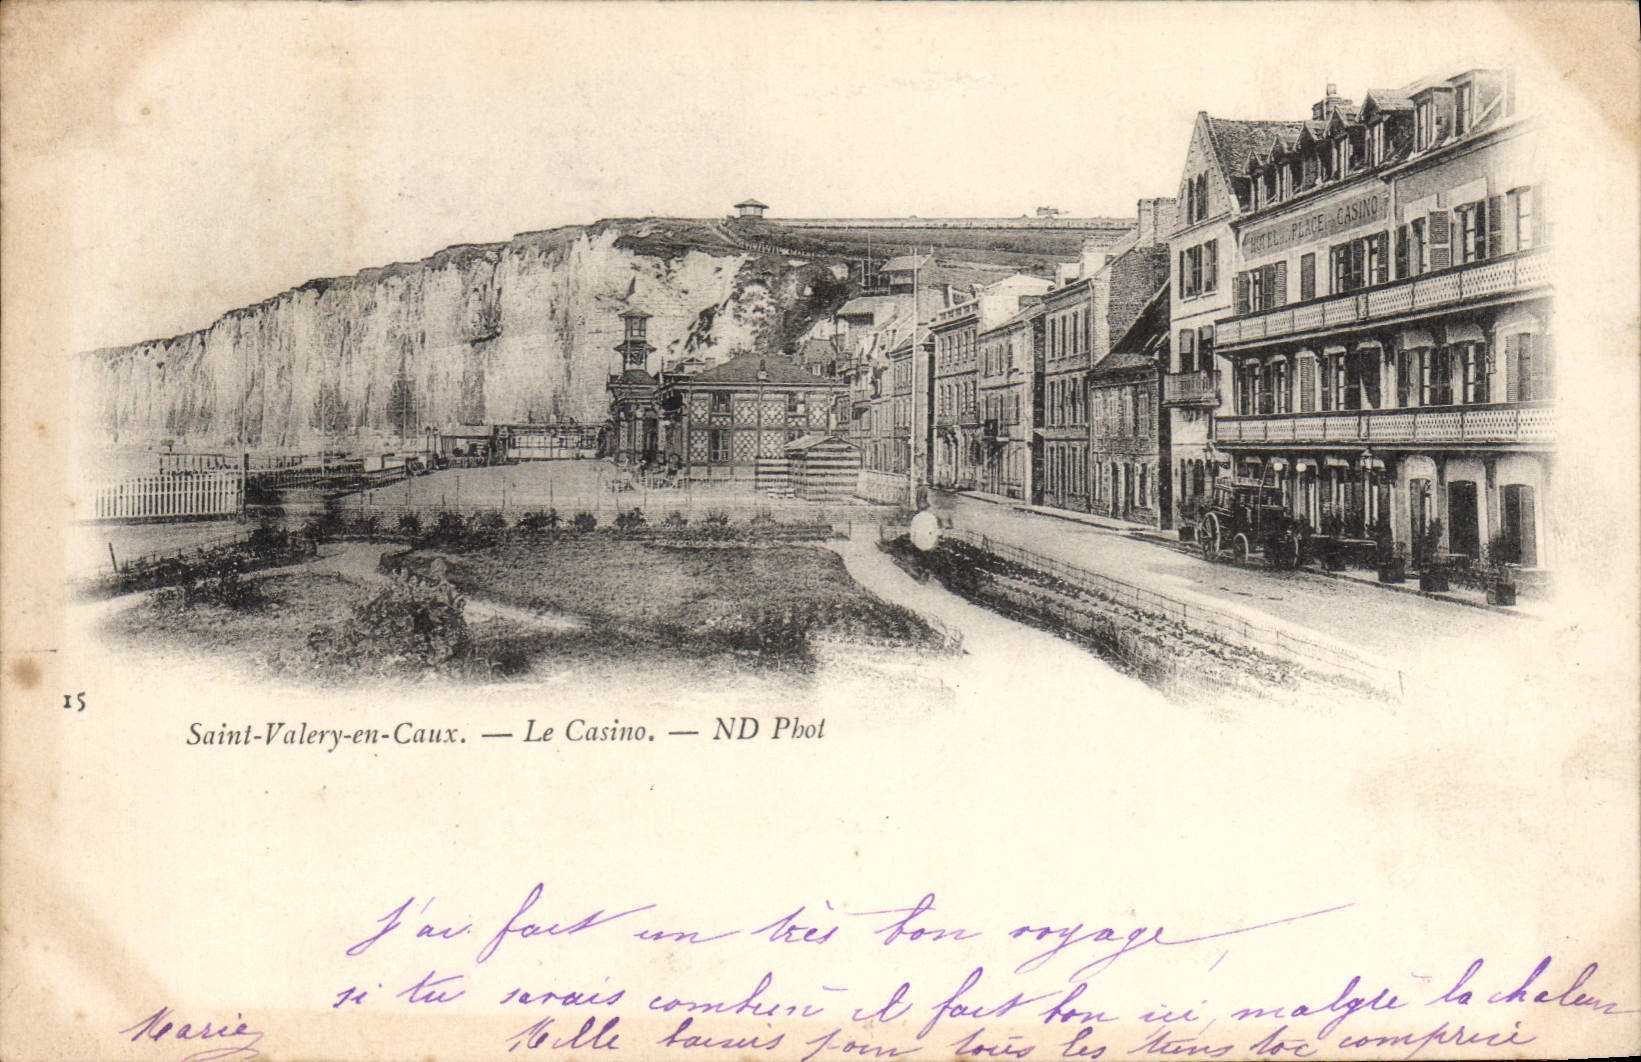 HOTEL DE LA PLACE DU CASINO
15
Saint-Valery-en-Caux. — Le Casino. — ND Phot
J'ai fait un très bon voyage,
si tu savais combien il fait bon ici, malgré la chaleur
Marie
Mille baisers pour tous les tiens toc comprise